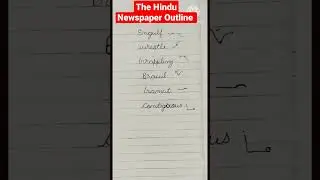 The Hindu
Newspaper Outline
Engulf
Wrestle
Grappling
Brawl
Gamut
Contiguous